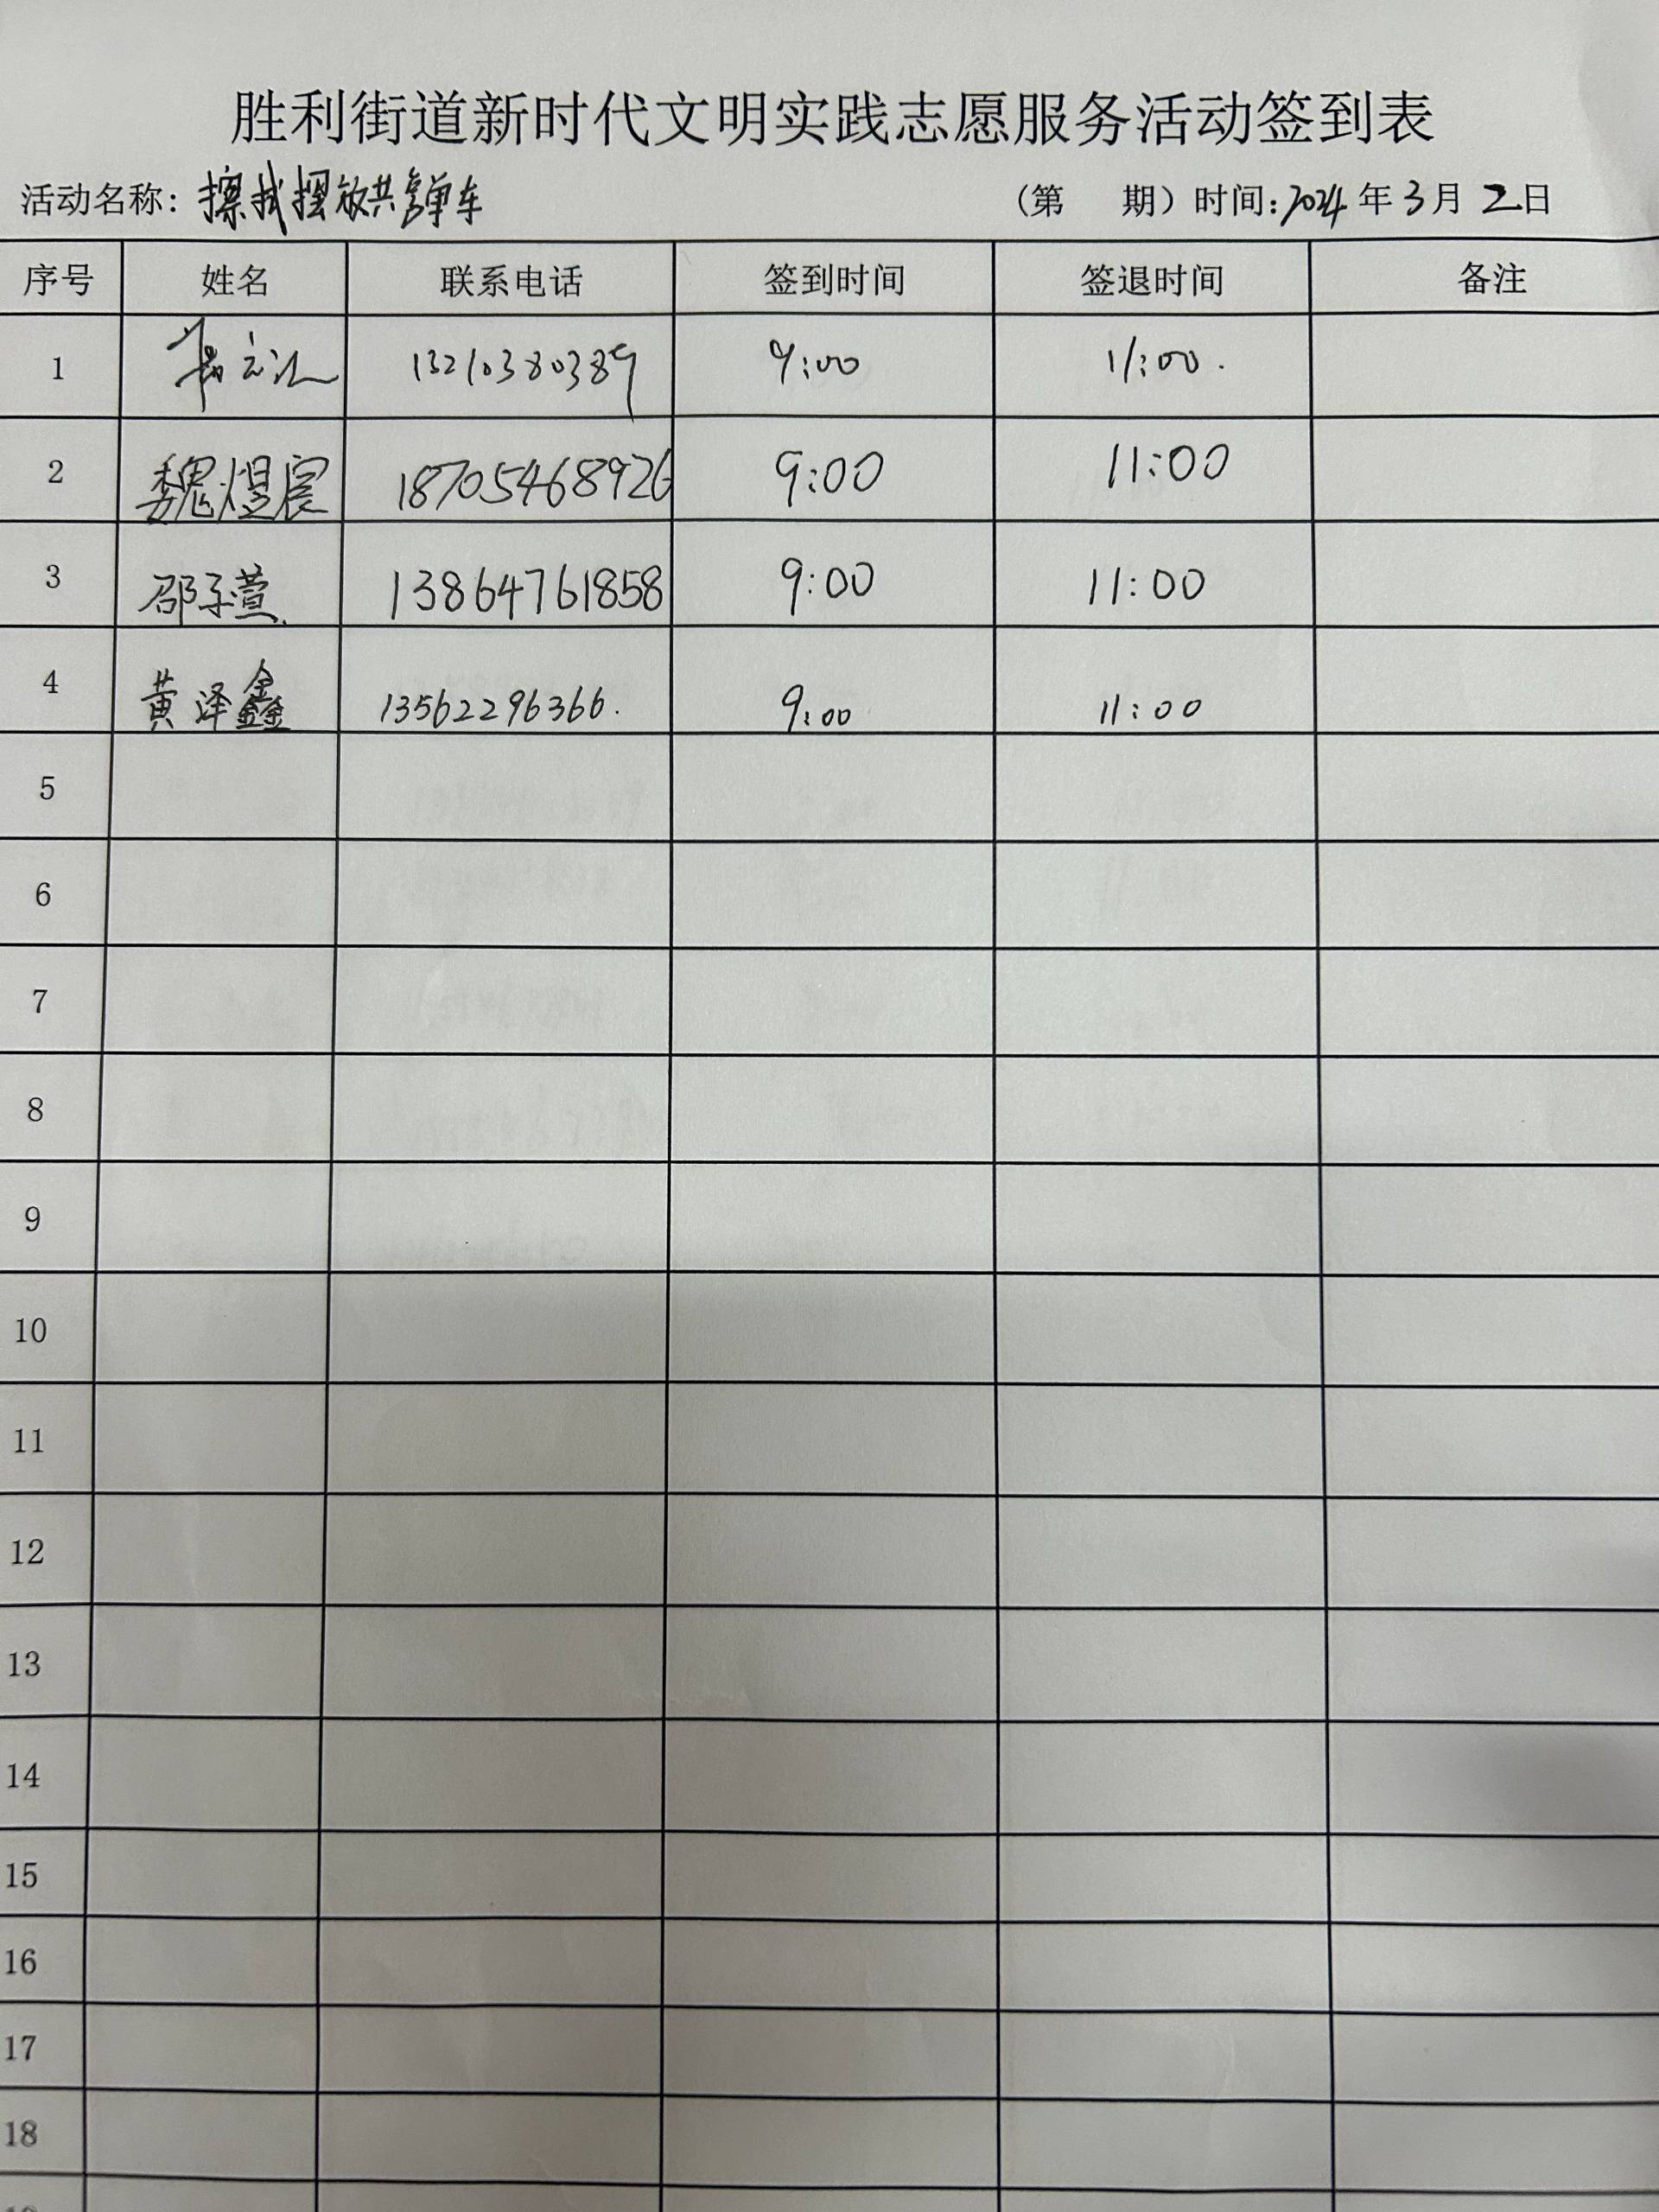 胜利街道新时代文明实践志愿服务活动签到表
活动名称：擦拭摆放共享单车 （第 期）时间：2024年3月2日
序号 姓名 联系电话 签到时间 签退时间 备注
1 13210380389 9:00 11:00.
2 魏煜宸 18705468926 9:00 11:00
3 邵子萱. 13864761858 9:00 11:00
4 黄泽鑫 13562296366. 9:00 11:00
5
6
7
8
9
10
11
12
13
14
15
16
17
18